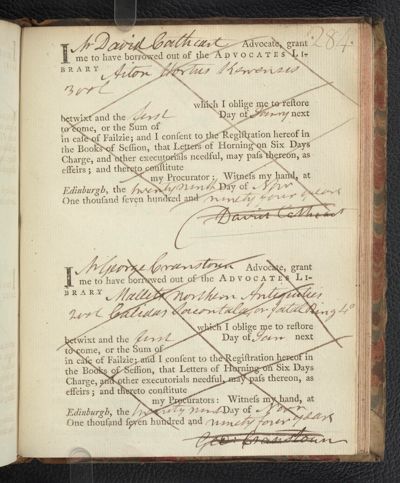 284
I Mr David Cathcart Advocate, grant
me to have borrowed out of the ADVOCATES LI-
BRARY Aiton Hortus Kewensis
3 vol
which I oblige me to restore
betwixt and the first Day of Janry next
to come, or the Sum of
in case of Failzie; and I consent to the Registration hereof in
the Books of Session, that Letters of Horning on Six Days
Charge, and other executorials needful, may pass thereon, as
effeirs; and thereto constitute
my Procurator: Witness my hand, at
Edinburgh, the twenty ninth Day of Novr
One thousand seven hundred and ninety four years
David Cathcart
I Mr George Cranstoun Advocate, grant
me to have borrowed out of the ADVOCATES LI-
BRARY Mallets Northern Antiquities
2 vol Calidas Sacontala or fatal Ring 4o
which I oblige me to restore
betwixt and the first Day of Janr next
to come, or the Sum of
in case of Failzie; and I consent to the Registration hereof in
the Books of Session, that Letters of Horning on Six Days
Charge, and other executorials needful, may pass thereon, as
effeirs; and thereto constitute
my Procurators: Witness my hand, at
Edinburgh, the twenty nine Day of Novr
One thousand seven hundred and ninety four years
Geo: Cranstoun